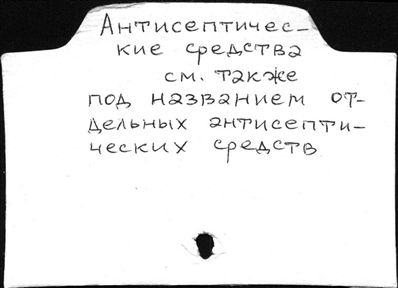 Антисептичес–
кие средства
см. также
под названием от-
дельных антисепти–
ческих средств